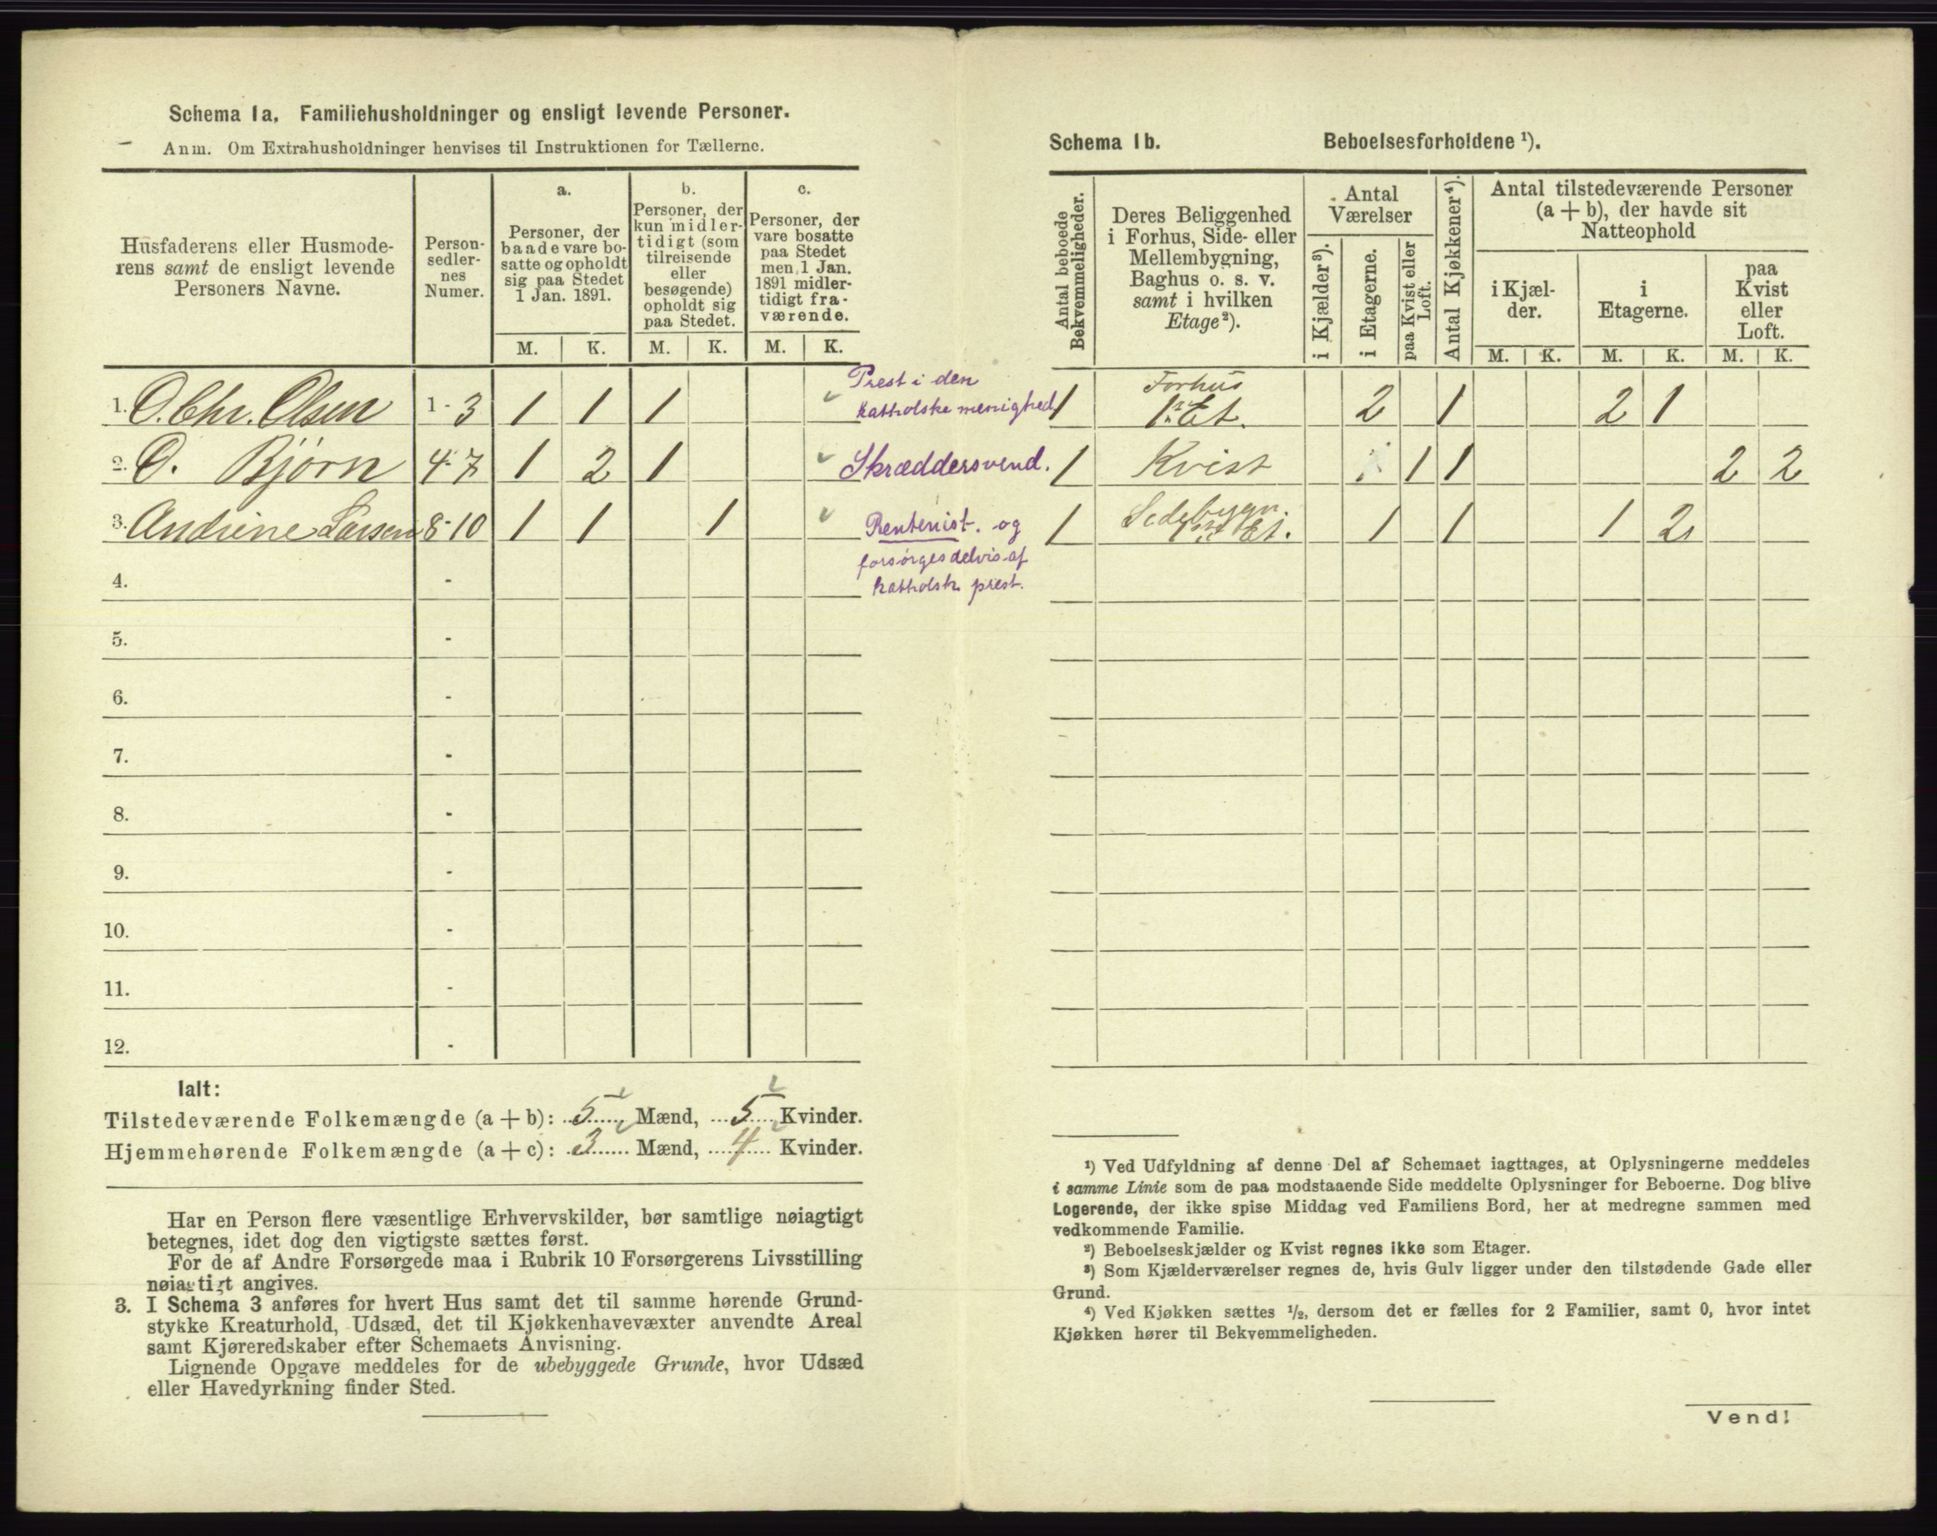 Schema 1a. Familiehusholdninger og ensligt levende Personer.
Anm. Om Extrahusholdninger henvises til Instruktionen for Tællerne.
Husfaderens eller Husmode-
rens samt de ensligt levende
Personers Navne.
Person-
sedler-
nes
Numer.
a.
Personer, der
baade vare bo-
satte og opholdt
sig paa Stedet
1 Jan. 1891.
b.
Personer, der
kun midler-
tidigt (som
tilreisende
eller
besøgende)
opholdt sig
paa Stedet.
c.
Personer, der
vare bosatte
paa Stedet
men 1 Jan.
1891 midler-
tidigt fra-
værende.
M. K. M. K. M. K.
1. O. Chr. Olsen 1-3 1 1 1
Prest i den
katholske menighed
2. O. Bjørn 4-7 1 2 1 Skræddersvend.
3. Andrine Larsen 8-10 1 1 1 Rentenist. og
forsørges delvis af
katholsk prest.
4. -
5. -
6. -
7. -
8. -
9. -
10. -
11. -
12. -
Ialt:
Tilstedeværende Folkemængde (a + b): 5 Mænd, 5 Kvinder.
Hjemmehørende Folkemængde (a + c): 3 Mænd, 4 Kvinder.
Har en Person flere væsentlige Erhvervskilder, bør samtlige nøiagtigt
betegnes, idet dog den vigtigste sættes først.
For de af Andre Forsørgede maa i Rubrik 10 Forsørgerens Livsstilling
nøiagtigt angives.
3. I Schema 3 anføres for hvert Hus samt det til samme hørende Grund-
stykke Kreaturhold, Udsæd, det til Kjøkkenhavevæxter anvendte Areal
samt Kjøreredskaber efter Schemaets Anvisning.
Lignende Opgave meddeles for de ubebyggede Grunde, hvor Udsæd
eller Havedyrkning finder Sted.
Schema 1b. Beboelsesforholdene ¹).
Antal beboede
Bekvemmeligheder.
Deres Beliggenhed
i Forhus, Side- eller
Mellembygning,
Baghus o. s. v.
samt i hvilken
Etage²).
Antal
Værelser
i Kjælder³).
i Etagerne.
paa Kvist eller
Loft.
Antal Kjøkkener⁴).
Antal tilstedeværende Personer
(a + b), der havde sit
Natteophold
i Kjæl-
der.
i
Etagerne.
paa
Kvist
eller
Loft.
M. K. M. K. M. K.
1 Forhus
1ste Et. 2 1 2 1
1 Kvist 1 1 2 2
1 Sidebygn.
1ste Et. 1 1 1 2
¹) Ved Udfyldning af denne Del af Schemaet iagttages, at Oplysningerne meddeles
i samme Linie som de paa modstaaende Side meddelte Oplysninger for Beboerne. Dog blive
Logerende, der ikke spise Middag ved Familiens Bord, her at medregne sammen med
vedkommende Familie.
²) Beboelseskjælder og Kvist regnes ikke som Etager.
³) Som Kjælderværelser regnes de, hvis Gulv ligger under den tilstødende Gade eller
Grund.
⁴) Ved Kjøkken sættes ½, dersom det er fælles for 2 Familier, samt 0, hvor intet
Kjøkken hører til Bekvemmeligheden.
Vend!